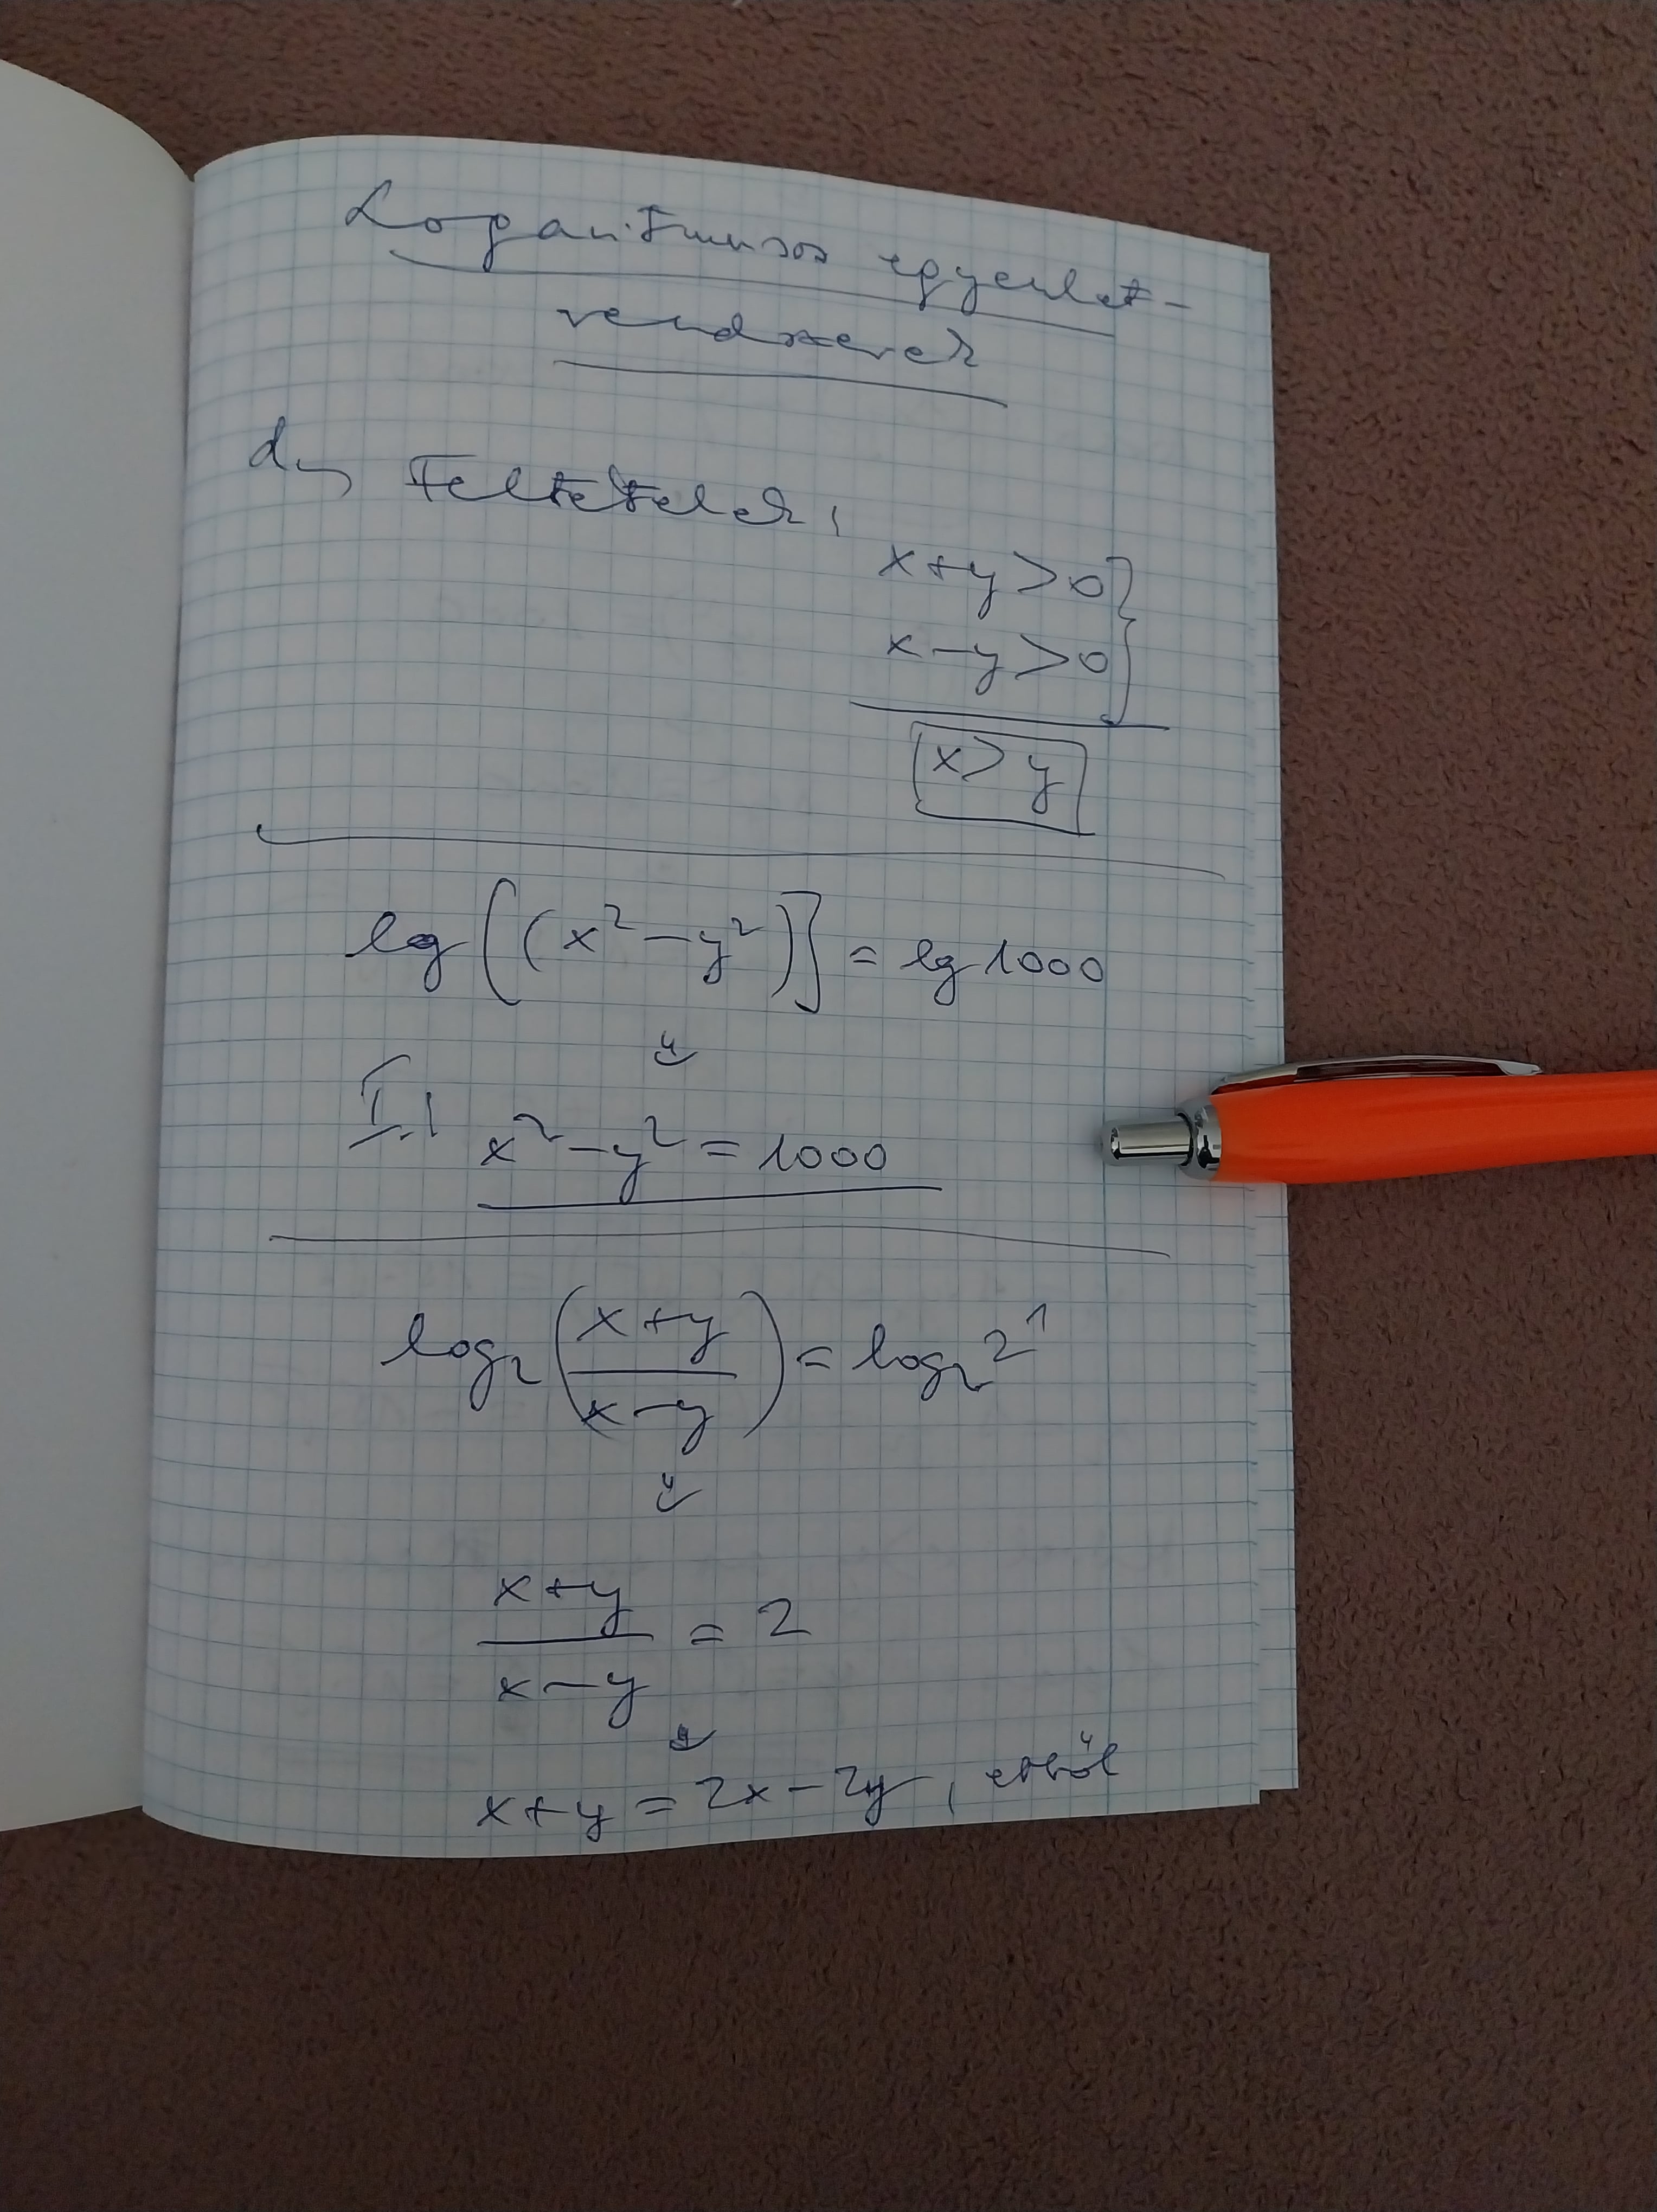 Logaritmusos egyenlet-
rendszerek
d, Feltételek,
x+y>0
x-y>0
x>y
lg[(x²-y²)] = lg 1000
I.) x²-y² = 1000
log₂((x+y)/(x-y)) = log₂ 2¹
(x+y)/(x-y) = 2
x+y = 2x-2y, ebből